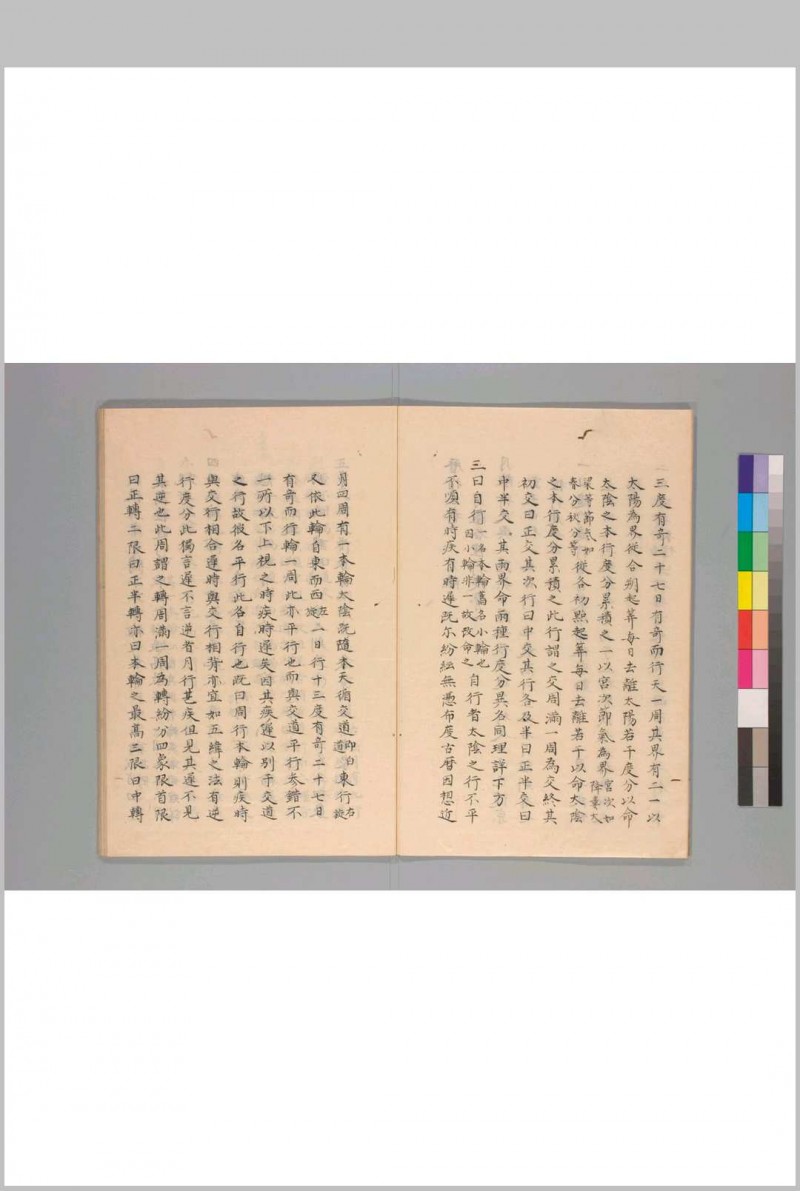 三度有奇二十七日有奇而行天一周其界有二一以
太陽為界從合朔起筭每日去離太陽若干度分以命
太陰之本行度分累積之一以宮次節氣為界宮次如降婁大
梁等節氣如春分秋分等從各初點起筭每日去離若干以命太陰
之本行度分累積之此行謂之交周滿一周為交終其
初交曰正交其次行曰中交其行各及半曰正半交曰
中半交其兩界命兩種行度分異名同理詳下方
三曰自行一名本輪舊名小輪也因小輪非一故改命之自行者太陰之行不平
不順有時疾有時遲既亦紛紜無憑布度古曆因想近
月四周有一本輪太陰既隨本天循交道即白道東行右旋
又依此輪自東而西左旋一日行十三度有奇二十七日
有奇而行輪一周此亦平行也而與交道平行參錯不
一所以下上視之時疾時遲矣因其疾遲以別于交道
之行故彼名平行此名自行也既曰周行本輪則疾時
與交行相合遲時與交行相背亦宜如五緯之法有逆
行度分此獨言遲不言逆者月行甚疾但見其遲不見
其逆也此周謂之轉周滿一周為轉終分四象限首限
曰正轉二限曰正半轉亦曰本輪之最高三限曰中轉